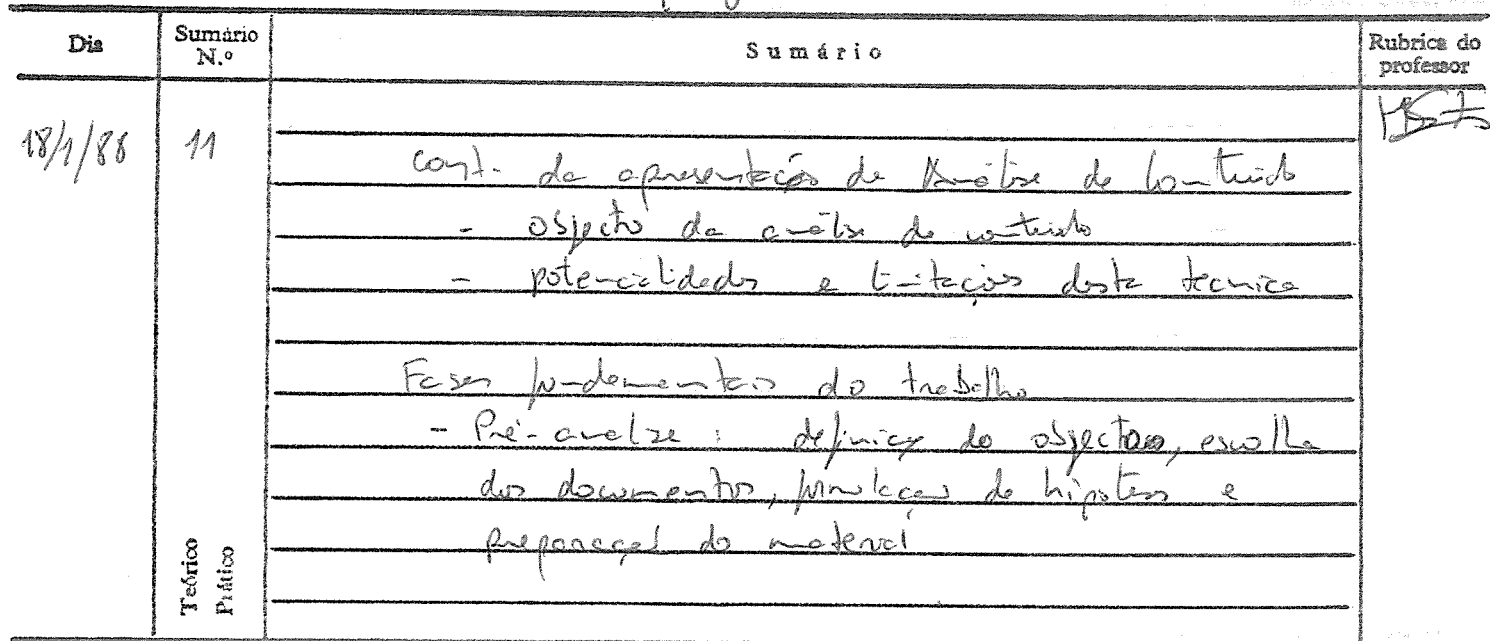 Dia
Sumário N.º
Sumário
Rubrica do professor
18/1/88
11
Cont. da apresentação de Análise de Conteúdo
- objecto da análise de conteúdo
- potencialidades e limitações desta tecnica
Fases fundamentais do trabalho
- Pré-analise : definição do objecto, escolha
dos documentos, formulação de hipóteses e
preparação do material
Teórico
Prático